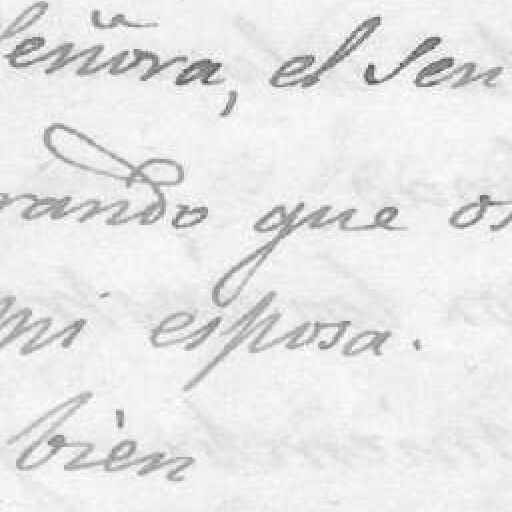 Señora, el Sen
rando que os
mi esposa.
bien